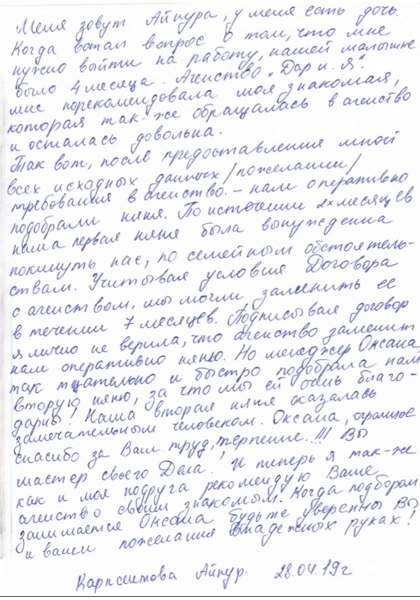 Меня зовут Айнура, у меня есть дочь.
Когда встал вопрос о том, что мне
нужно выйти на работу, нашей малышке
было 4 месяца. Агенство "Дар и Я".
мне порекомендовала моя знакомая,
которая так-же обращалась в агенство
и осталась довольна.
Так вот, после предоставления мной
всех исходных данных/пожелании/
требования в агенство. – нам оперативно
подобрали няня. По истечении 2х месяцев
наша первая няня была вынуждена
покинуть нас, по семейным обстоятель-
ствам. Учитывая условия Договора
с агенством, мы могли заменить ее
в течении 7 месяцев. Подписывая договор
я лично не верила, что агенство заменит
нам оперативно няню. Но менеджер Оксана
так тщательно и быстро подобрала нам
вторую няню, за что мы ей очень благо-
дарны! Наша вторая няня оказалась
замечательным человеком. Оксана, огромное
спасибо за Ваш труд, терпение...!!! Вы
мастер своего Дела! И теперь я так-же
как и моя подруга рекомендую Ваше
агенство своим знакомым. Когда подбором
занимается Оксана будьте уверенны Вы
и ваши пожелания в надежных руках!
Айнур. 28.04.19г